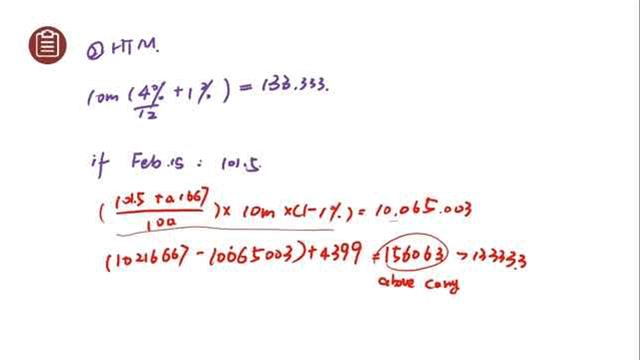 ② HTM.
10m (4%/12 + 1%) = 133.333.
if Feb.15 : 101.5.
(101.5 + 0.1667/100) × 10m × (1-1%) = 10.065.003
(10216667 - 10065003) + 4399 = 156063 > 133333
above carry